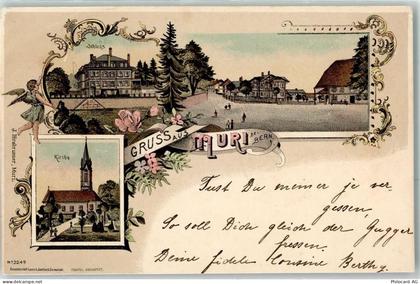 Schloss
GRUSS AUS MURI b/ BERN
Kirche
No 3249
Tust Du meiner je ver-
gessen,
So soll Dich gleich der Gugger
fressen.
Deine fidele Cousine Berthy.